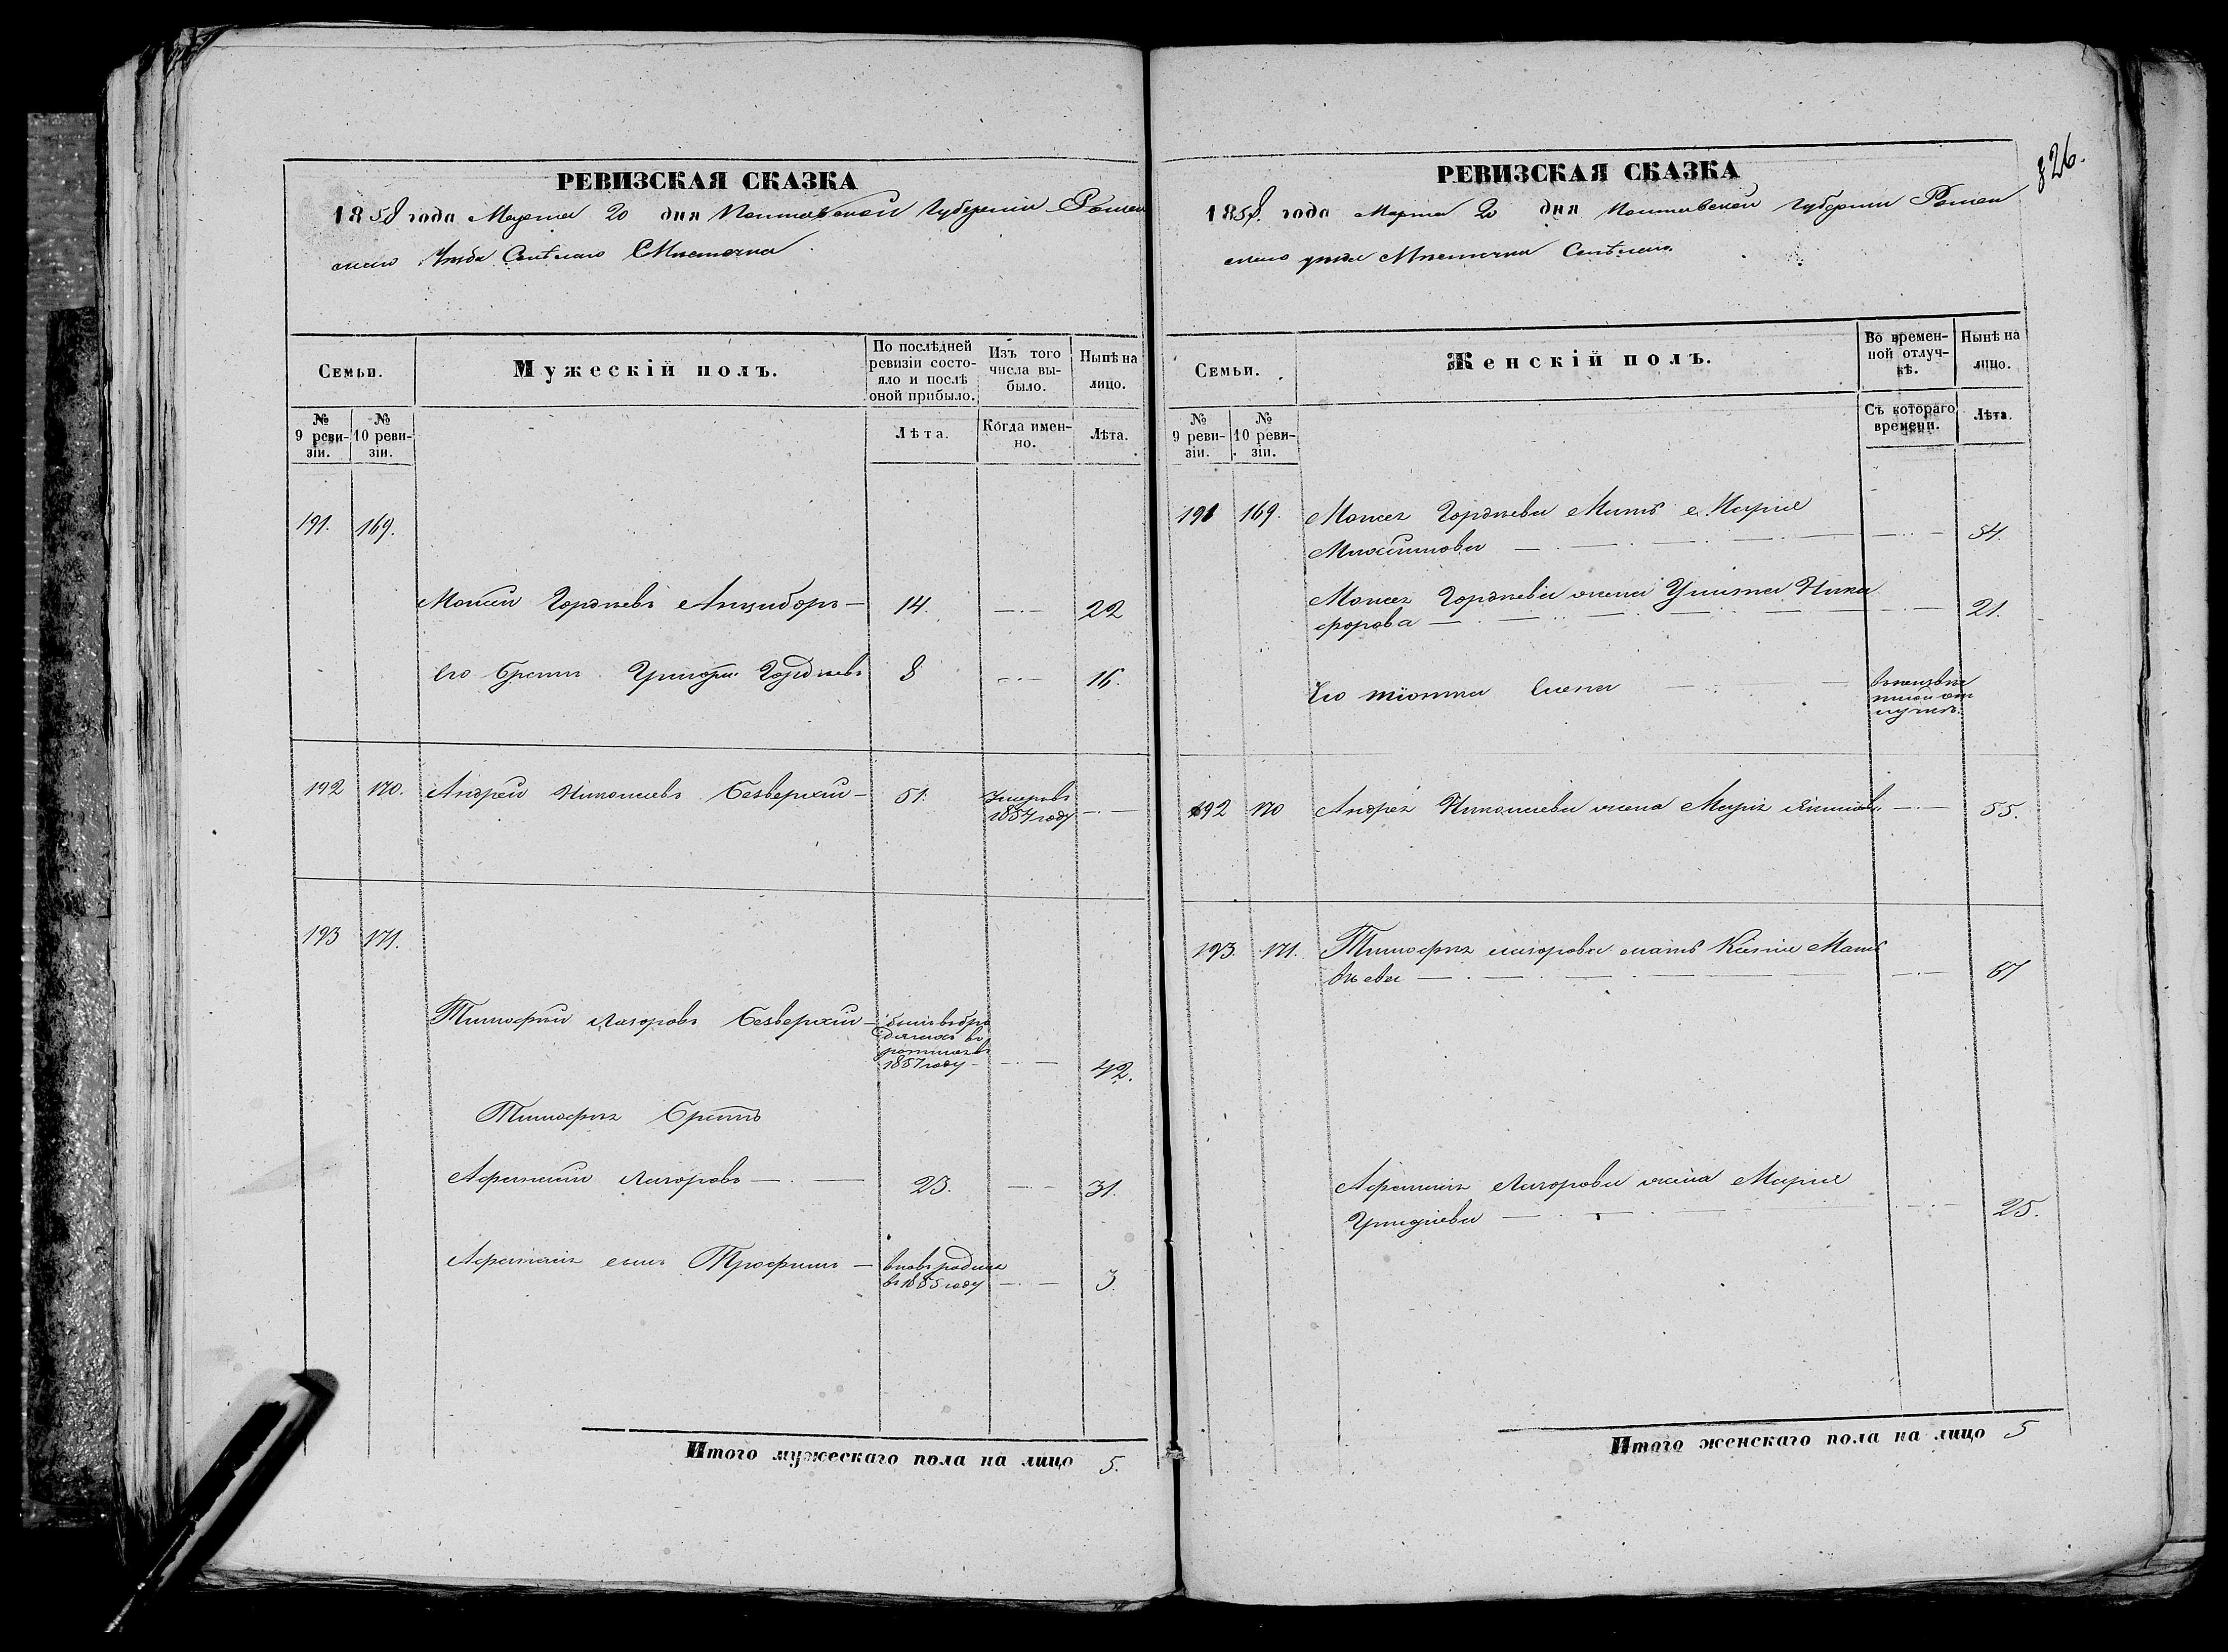 РЕВИЗСКАЯ СКАЗКА
1858 года Марта 20 дня Полтавской Губерніи Ромен
скаго Уѣзда Мѣстечка
Семьи.
Мужескій полъ.
По послѣдней
ревизіи состо-
яло и послѣ
оной прибыло.
Изъ того
числа вы-
было.
Нынѣ на
лицо.
№
9 реви-
зіи.
№
10 реви-
зіи.
Лѣта.
Когда имен-
но.
Лѣта.
191. 169.
Моисей Гордѣевъ Анциборъ — 14. — 22
его братъ Григорій Гордѣевъ 8 — 16.
192 170. Андрей Николаевъ Безверхій — 51. Умеръ въ
1857 году —
193 171.
Тимофей Лазоровъ Безверхій —
1857 году — 42.
Тимофея братъ
Афанасій Лазоровъ — 23. — 31.
Афанасія сынъ Трофимъ — вновь родился
въ 1855 году — 3.
Итого мужескаго пола на лицо 5.
826.
РЕВИЗСКАЯ СКАЗКА
1858. года Марта 20 дня Полтавской Губерніи Ромен
скаго уѣзда Мѣстечка
Семьи.
Женскій полъ.
Во времен-
ной отлуч-
кѣ.
Нынѣ на
лицо.
№
9 реви-
зіи.
№
10 реви-
зіи.
Съ котораго
времени.
Лѣта.
191 169. Моисея Гордѣева мать Марія
Максимова — 54.
Моисея Гордѣева жена Улита Ники
форова — 21.
Его тіотка Елена — въ неизвѣс
тной от
лучкѣ.
192 170 Андрея Николаева жена Марія — 55.
193. 171. Тимофея Лазорова мать Ксенія Мат
вѣева — 67
Афанасія Лазорова жена Марія
— 25.
Итого женскаго пола на лицо 5